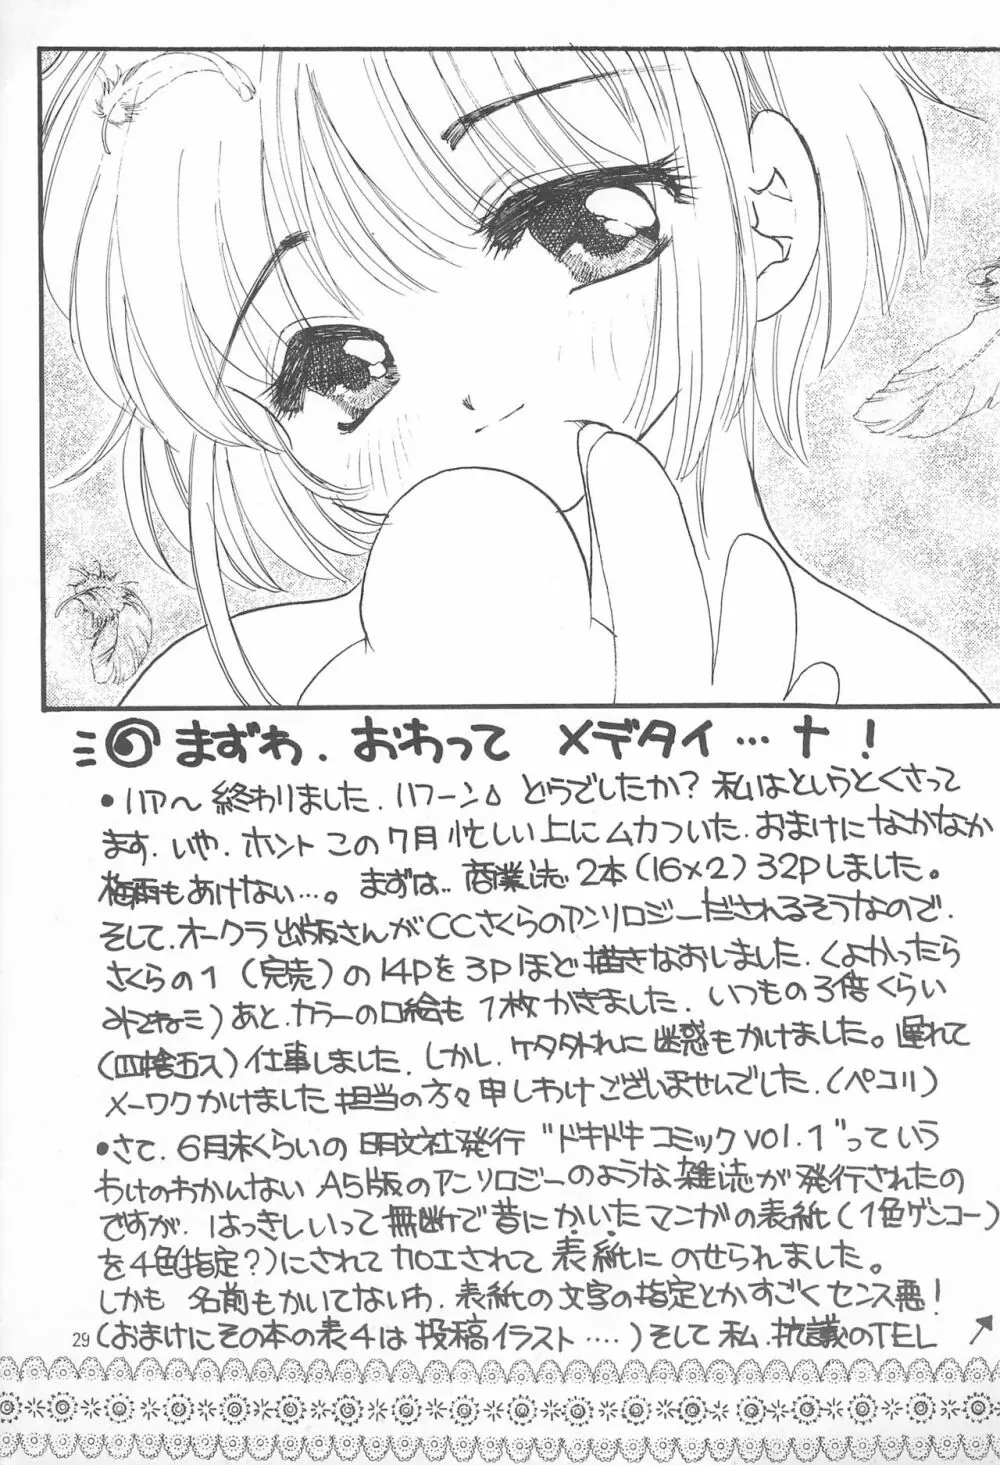 まずわ.おわって メデタイ…ナ!
•ハア〜終わりました.ハフーン とうでしたか?私はというとくさって
ます.いや.ホント この7月忙しい上にムカついた.おまけになかなか
梅雨もあけない…。まずは..商業誌2本(16×2)32Pしました。
そして.オークラ出版さんがCCさくらのアンソロジーだされるそうなので.
さくらの1(完売)の14Pを3Pほど描きなおしました.くよかったら
みてねミ)あと.カラーの口絵も1枚かきました.いつもの3倍くらい
(四捨五入)仕事しました.しかし.ケタ外れに迷惑もかけました。遅れて
メーワクかけました担当の方々申しわけございませんでした.(ペコリ)
•さて.6月末くらいの明文社発行"ドキドキコミックvol.1"っていう
わけのわかんないA5版のアンソロジーのような雑誌が発行されたの
ですが.はっきしいって無断で昔にかいたマンガの表紙(1色ゲンコー)
を4色(指定?)にされて加工されて表紙にのせられました。
しかも 名前もかいてないわ.表紙の文字の指定とかすごくセンス悪!
(おまけにその本の表4は投稿イラスト‥‥)そして私.抗議のTEL
29